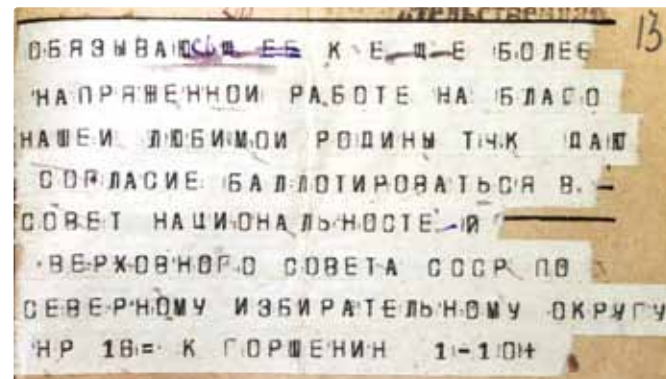 ПРАВИТЕЛЬСТВЕННАЯ
13
ОБЯЗЫВАЮЩ ЕЕ К ЕЩЕ БОЛЕЕ
НАПРЯЖЕННОЙ РАБОТЕ НА БЛАГО
НАШЕЙ ЛЮБИМОЙ РОДИНЫ ТЧК ДАЮ
СОГЛАСИЕ БАЛЛОТИРОВАТЬСЯ В
СОВЕТ НАЦИОНАЛЬНОСТЕЙ
ВЕРХОВНОГО СОВЕТА СССР ПО
СЕВЕРНОМУ ИЗБИРАТЕЛЬНОМУ ОКРУГУ
НР 16= К ГОРШЕНИН 1-10+